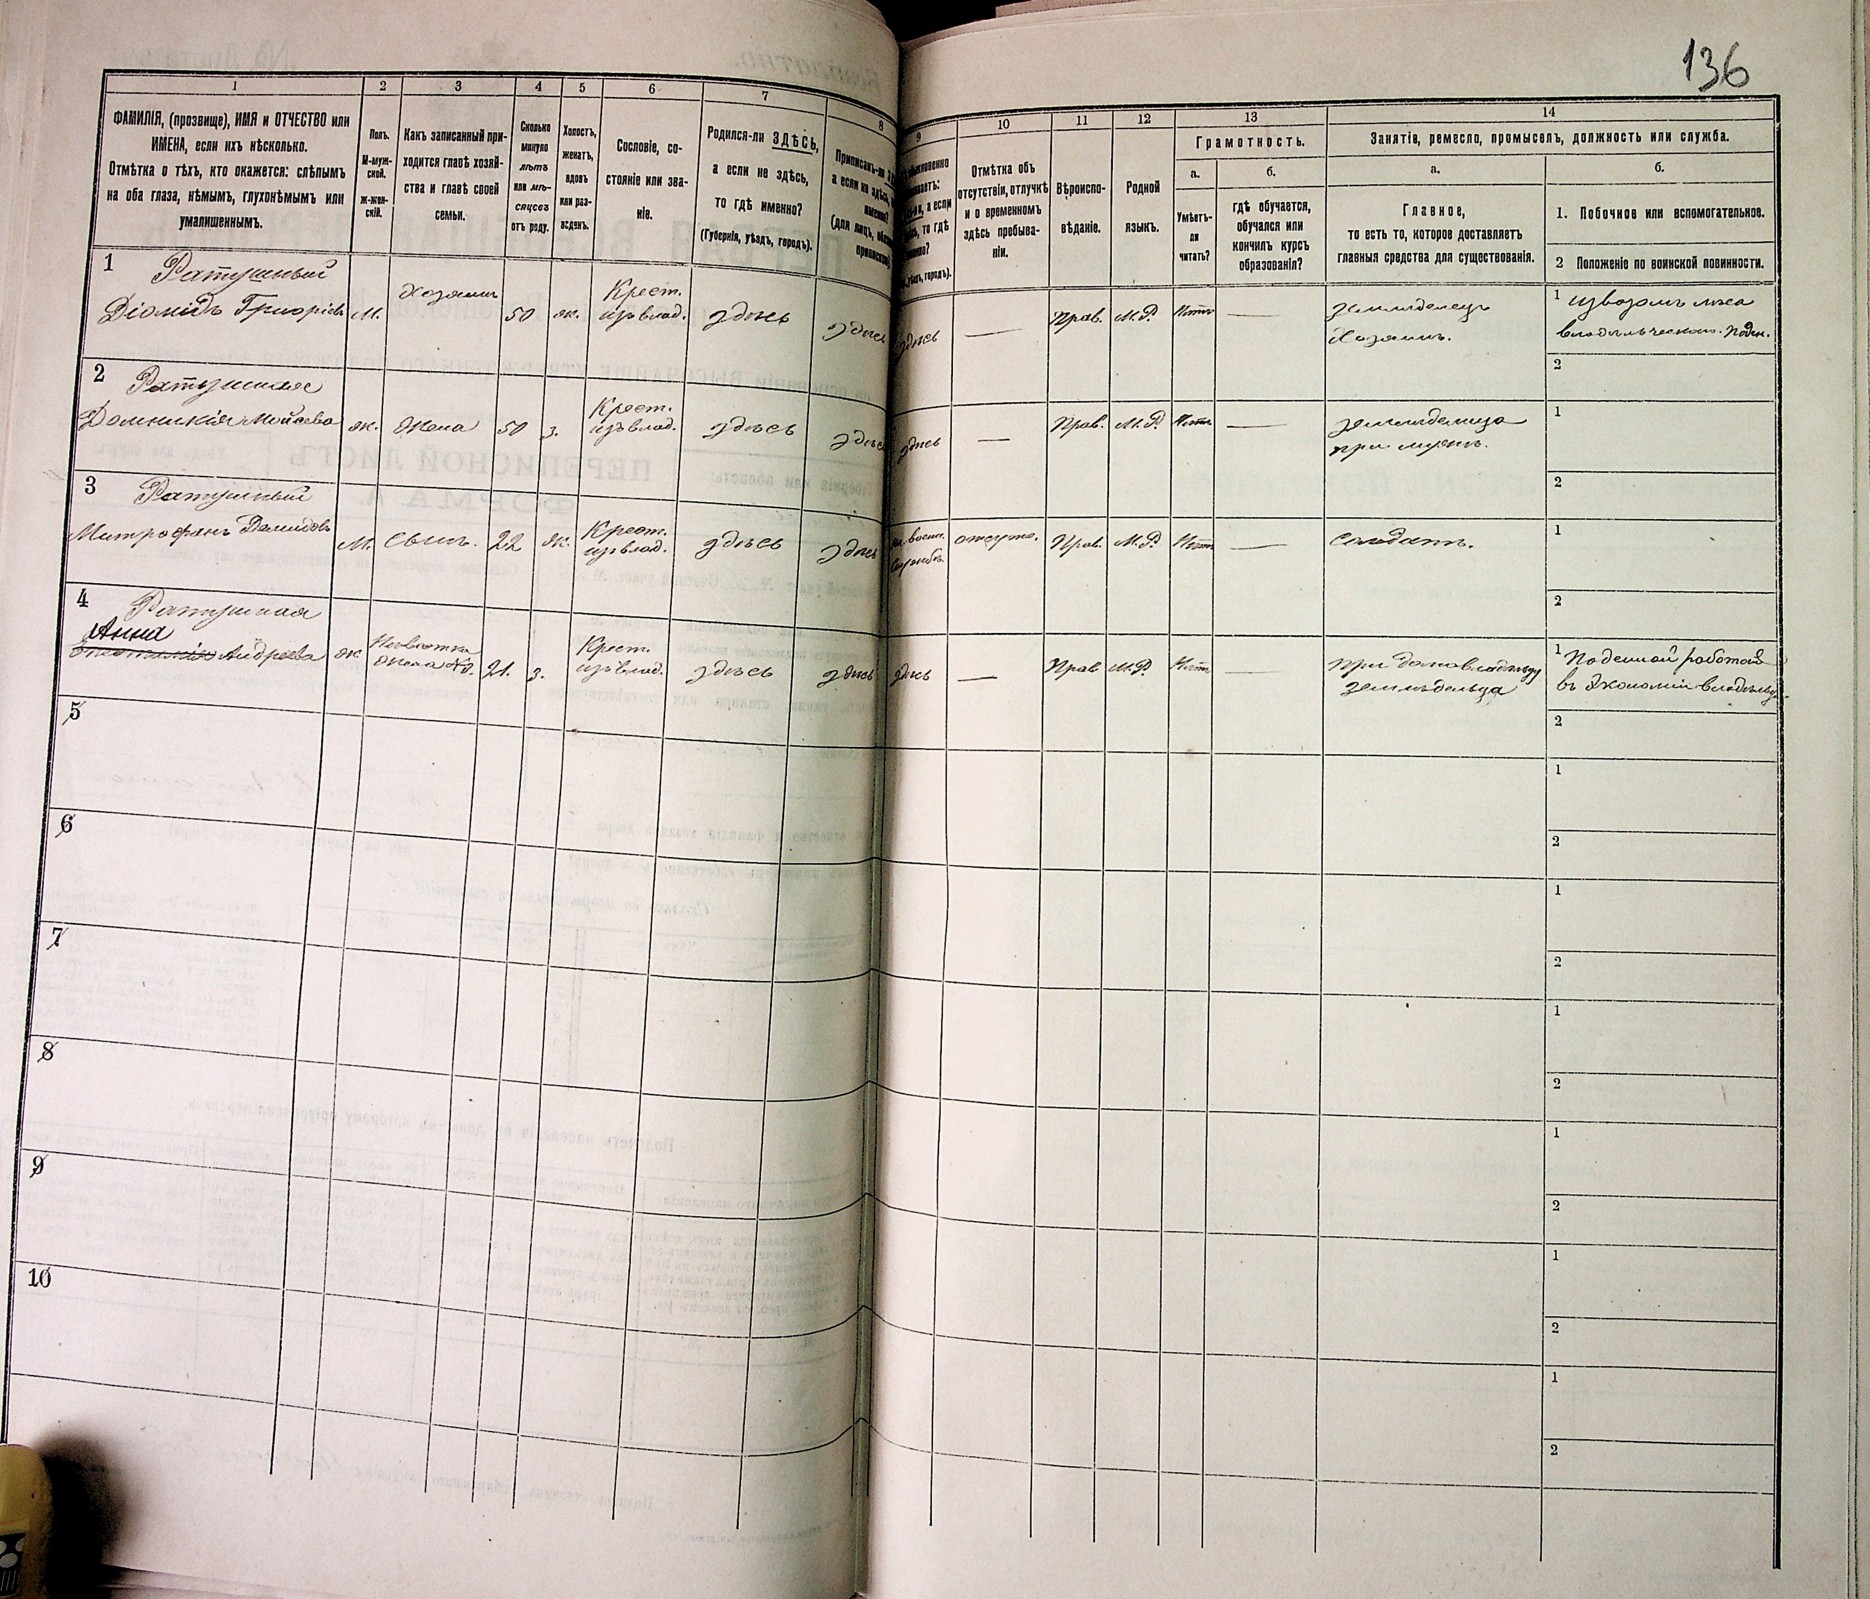 136
1
2
3
4
5
6
7
8
9
10
11
12
13
14
ФАМИЛІЯ, (прозвище), ИМЯ и ОТЧЕСТВО или
ИМЕНА, если ихъ нѣсколько.
Отмѣтка о тѣхъ, кто окажется: слѣпымъ
на оба глаза, нѣмымъ, глухонѣмымъ или
умалишеннымъ.
Полъ.
М-муж-
ской.
Ж-жен-
скій.
Какъ записанный при-
ходится главѣ хозяй-
ства и главѣ своей
семьи.
Сколько
минуло
лѣтъ
или мѣ-
сяцевъ
отъ роду.
Холостъ,
женатъ,
вдовъ
или раз-
веденъ.
Сословіе, со-
стояніе или зва-
ніе.
Родился-ли ЗДѢСЬ,
а если не здѣсь,
то гдѣ именно?
(Губернія, уѣздъ, городъ).
Приписанъ-ли
а если не здѣсь,
(для лицъ,
Отмѣтка объ
отсутствіи, отлучкѣ
и о временномъ
здѣсь пребыва-
ніи.
Вѣроиспо-
вѣданіе.
Родной
языкъ.
Грамотность.
а.
Умѣетъ-
ли
читать?
б.
гдѣ обучается,
обучался или
кончилъ курсъ
образованія?
Занятіе, ремесло, промыселъ, должность или служба.
а.
Главное,
то есть то, которое доставляетъ
главныя средства для существованія.
б.
1. Побочное или вспомогательное.
2 Положеніе по воинской повинности.
1
Ратушный
Діомидъ Григорьев
М.
Хозяинъ
50
ж.
Крест.
изъ влад.
здѣсь
здѣсь
здѣсь
—
Прав.
М. Р.
Нѣтъ
—
земледѣлецъ
Хозяинъ.
1 извозомъ лѣса
владѣльческом. поден.
2
2
Ратушная
Домникія Мойсева
ж.
Жена
50
з.
Крест.
изъ влад.
здѣсь
здѣсь
здѣсь
—
Прав.
М. Р.
Нѣтъ
—
земледѣлица
при мужѣ.
1
2
3
Ратушный
Митрофанъ Демидовъ
М.
Сынъ.
22
ж.
Крест.
изъ влад.
здѣсь
здѣсь
отсутс.
Прав.
М. Р.
Нѣтъ
—
солдатъ.
1
2
4
Ратушная
Анна
Андреева
ж
Невѣстка
жена
21.
з.
Крест.
изъ влад.
здѣсь
здѣсь
здѣсь
—
Прав
М. Р.
Нѣтъ
—
при домовладѣльцу
земледѣльца
1 Поденной работой
въ экономіи владѣльц.
2
5
1
2
6
1
2
7
1
2
8
1
2
9
1
2
10
1
2